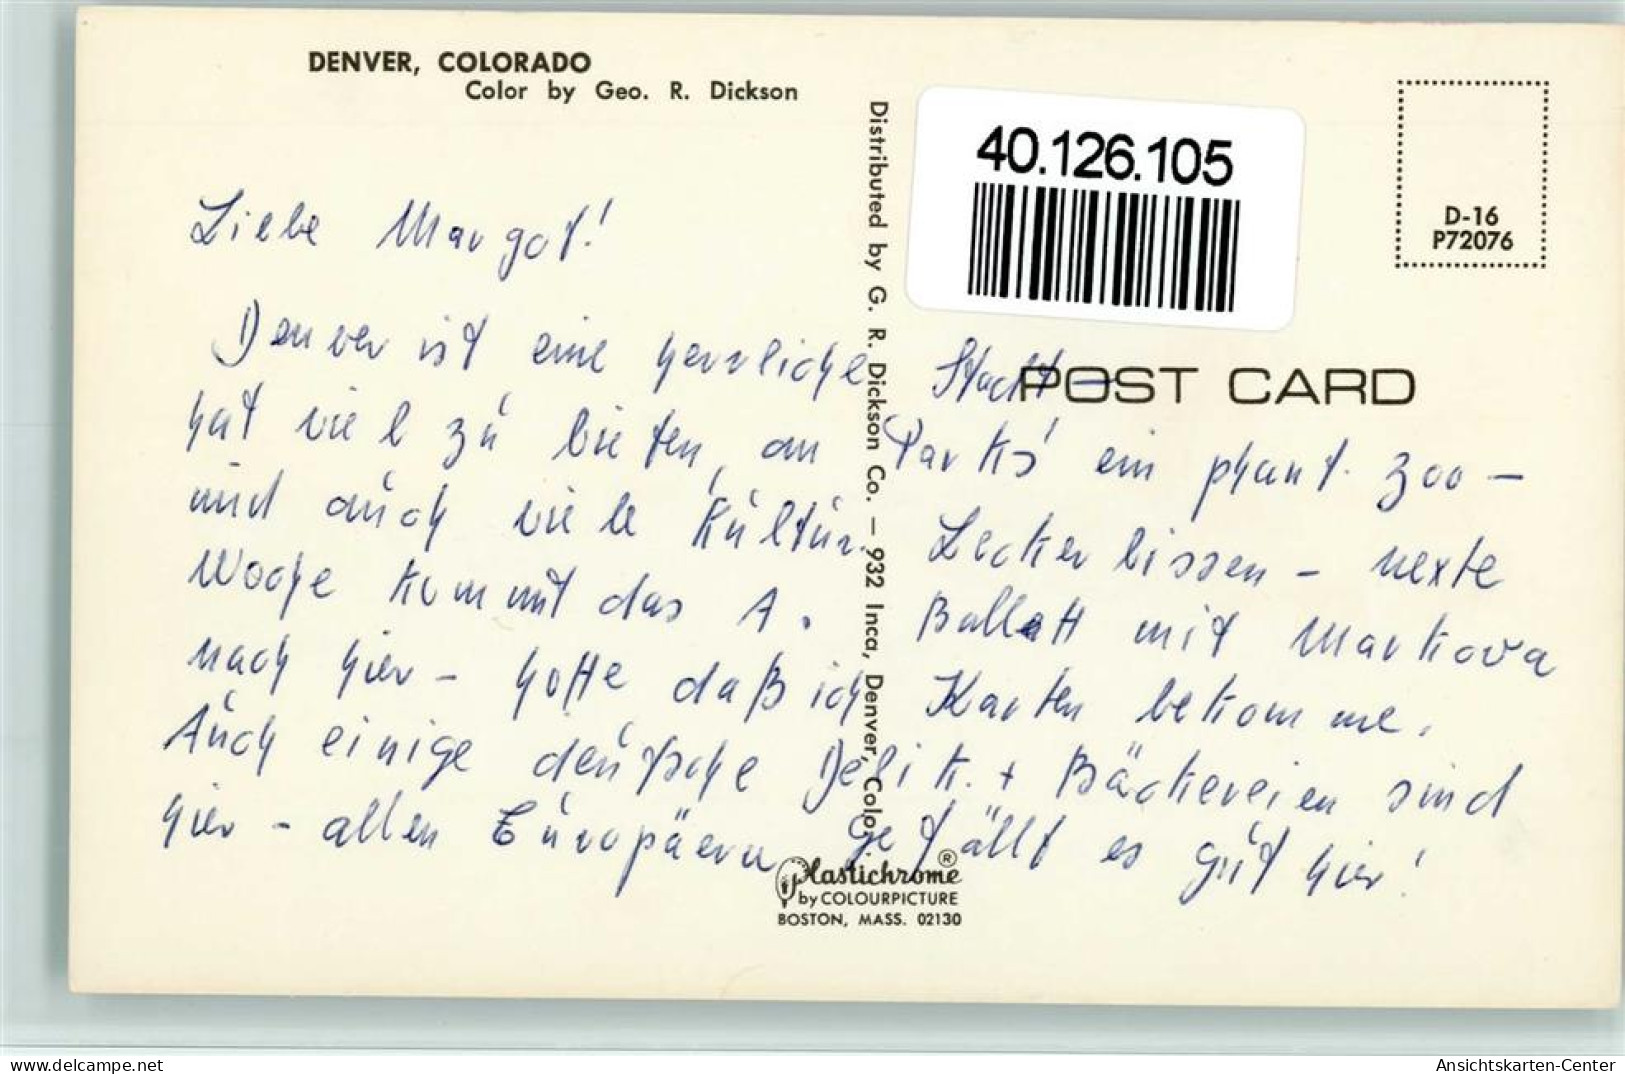 DENVER, COLORADO
Color by Geo. R. Dickson
40.126.105
D-16
P72076
Distributed by G. R. Dickson Co. — 932 Inca, Denver, Colo.
POST CARD
Liebe Margot!
Denver ist eine herrliche Stadt –
hat viel zu bieten, an Parks' ein phant. Zoo –
und auch viele Kultur. Leckerbissen – nexte
Woche kommt das A. Ballett mit Markova
nach hier – hoffe daß ich Karten bekomme.
Auch einige deutsche Delik. + Bäckereien sind
hier – allen Europäern gefällt es gut hier!
Plastichrome ®
by COLOURPICTURE
BOSTON, MASS. 02130
www.delcampe.net/store/oldthing
Ansichtskarten-Center